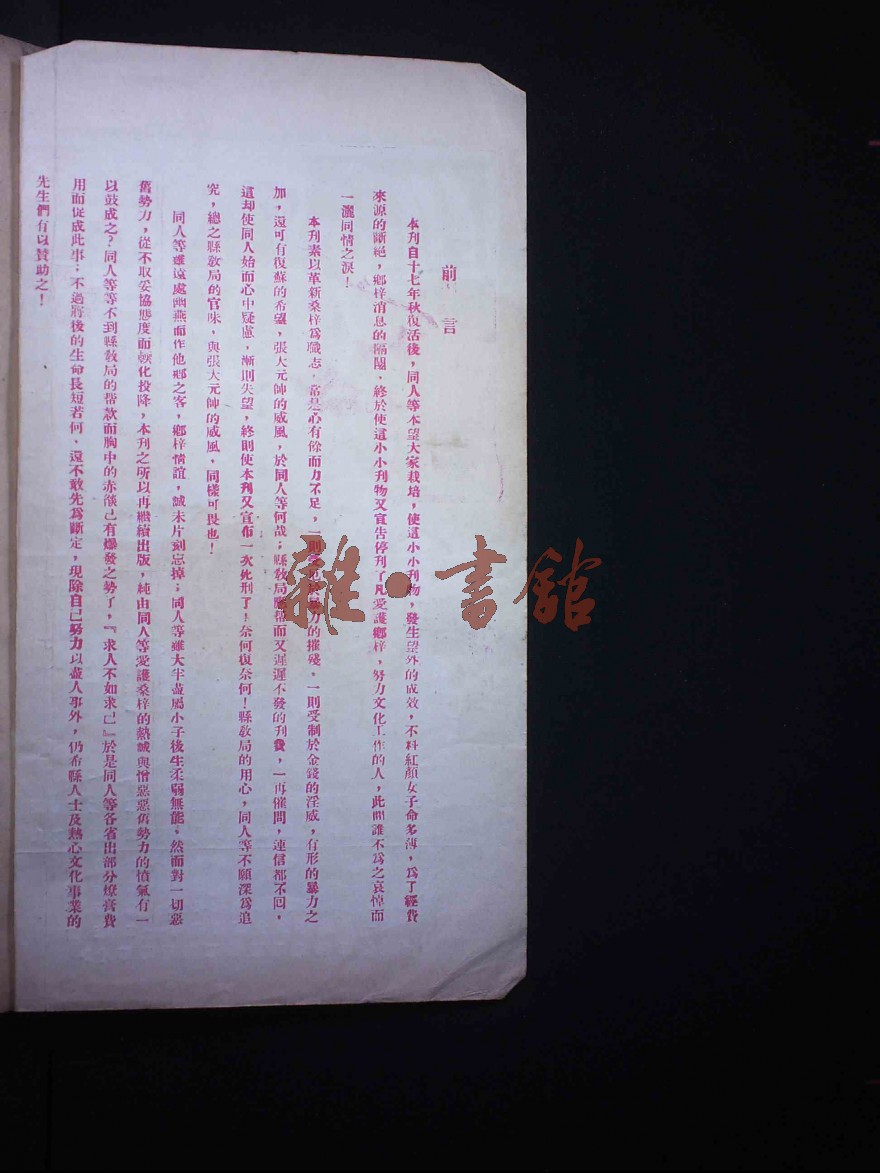 前言
本刊自十七年秋復活後，同人等本望大家栽培，使這小小刊物，發生望外的成效，不料紅顏女子命多薄，為了經費
來源的斷絕，鄉梓消息的隔閡，終於使這小小刊物又宣告停刊了凡愛護鄉梓，努力文化工作的人，此間誰不為之哀悼而
一灑同情之淚！
本刊素以革新桑梓為職志，常是心有餘而力不足，一則受於力的摧殘，一則受制於金錢的淫威，有形的暴力之
加，還可有復蘇的希望，張大元帥的威風，於同人等何哉；縣敎局應幣而又遲遲不發的刊費，一再催問，連信都不回，
這却使同人始而心中疑慮，漸則失望，終則使本刊又宣佈一次死刑了！奈何復奈何！縣敎局的用心，同人等不願深為追
究，總之縣敎局的官味，與張大元帥的威風，同樣可畏也！
同人等雖遠處幽燕而作他鄉之客，鄉梓情誼，誠未片刻忘掉；同人等雖大半盡屬小子後生柔弱無能，然而對一切惡
舊勢力，從不取妥協態度而軟化投降，本刊之所以再繼續出版，純由同人等愛護桑梓的熱誠與憎惡惡舊勢力的憤氣有一
以鼓成之？同人等等不到縣敎局的撥款而胸中的赤燄已有爆發之勢了，『求人不如求己』於是同人等各省出部分燎膏費
用而促成此事；不過將後的生命長短若何，還不敢先為斷定，現除自己努力以盡人事外，仍希縣人士及熱心文化事業的
先生們有以贊助之！
雜·書館